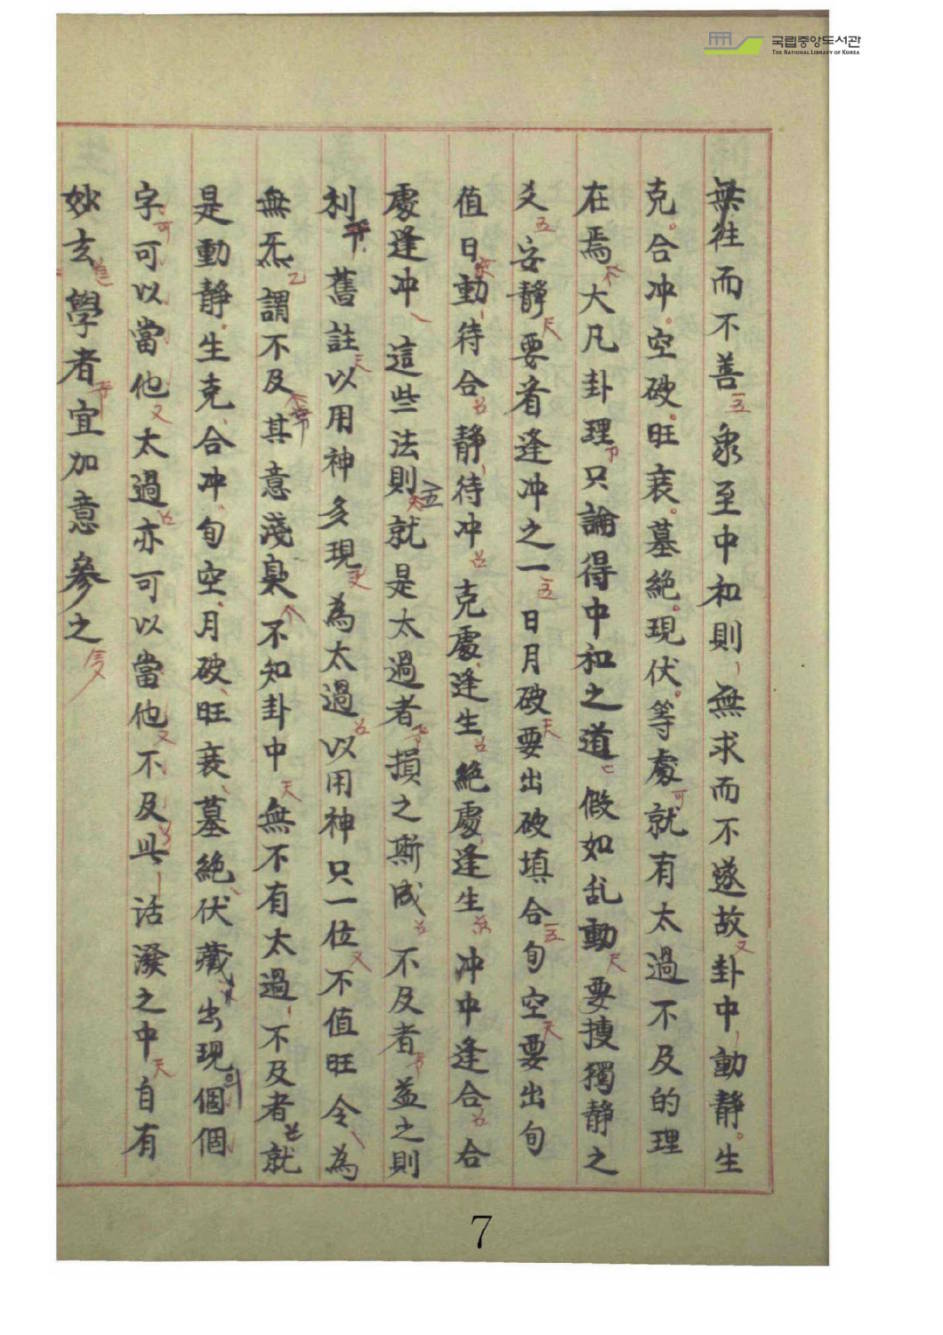 국립중앙도서관
THE NATIONAL LIBRARY OF KOREA
無往而不善 象至中和則無求而不遂故卦中動靜生
克合冲空破旺衰墓絶現伏等處就有太過不及的理
在焉 大凡卦理只論得中和之道 假如乱動要搜獨靜之
爻 安靜要看逢冲之一日月破要出破填合旬空要出旬
值日動待合靜待冲 克處逢生絶處逢生冲中逢合合
處逢冲 這些法則就是太過者損之斯成 不及者益之則
利 舊註以用神多現為太過以用神只一位不值旺令為
無炁 謂不及其意淺臭不知卦中無不有太過不及者就
是動靜生克合冲旬空月破旺衰墓絶伏藏出現個個
字可以當他太過亦可以當他不及此活潑之中自有
妙玄 學者宜加意參之
7